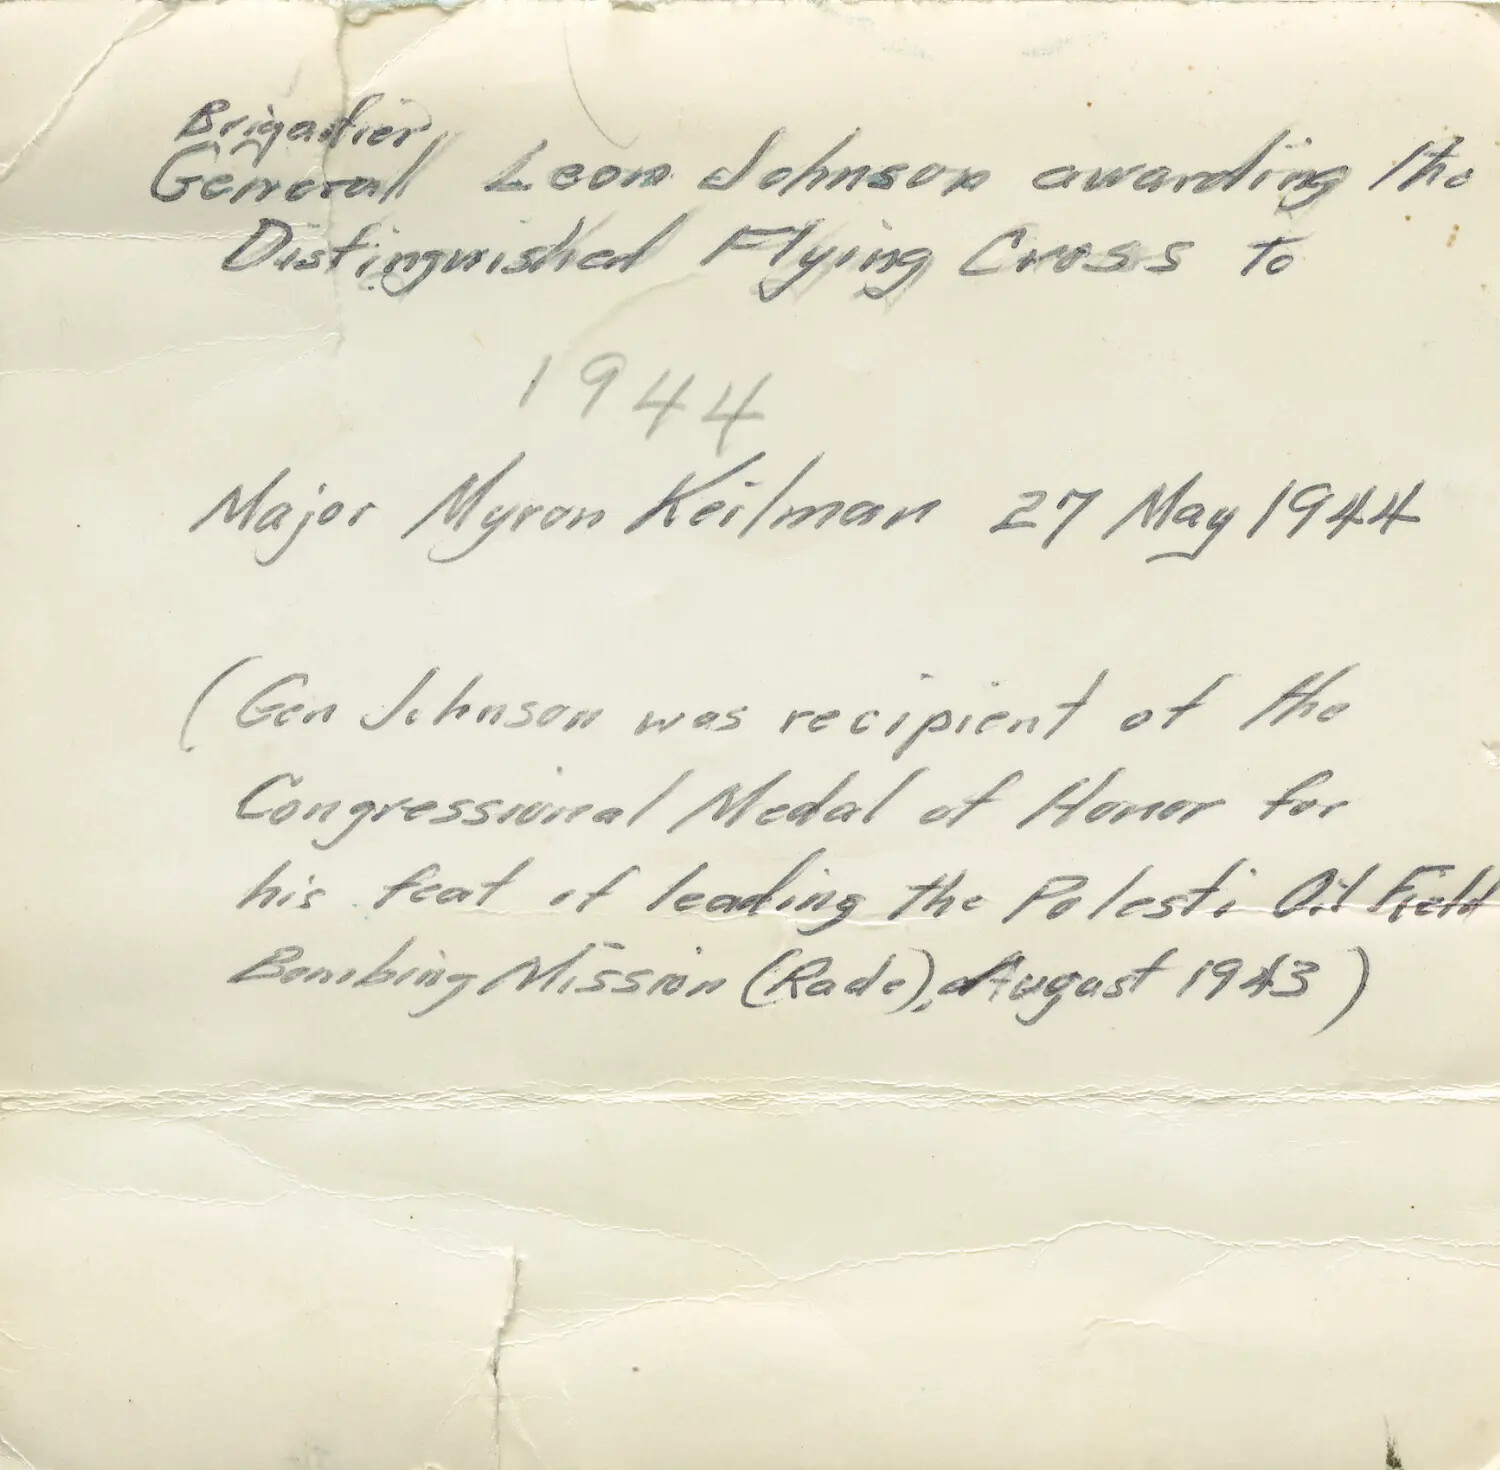 Brigadier
General Leon Johnson awarding the
Distinguished Flying Cross to
1944
Major Myron Keilman 27 May 1944
(Gen Johnson was recipient of the
Congressional Medal of Honor for
his feat of leading the Polesti Oil Field
Bombing Mission (Rade), August 1943)